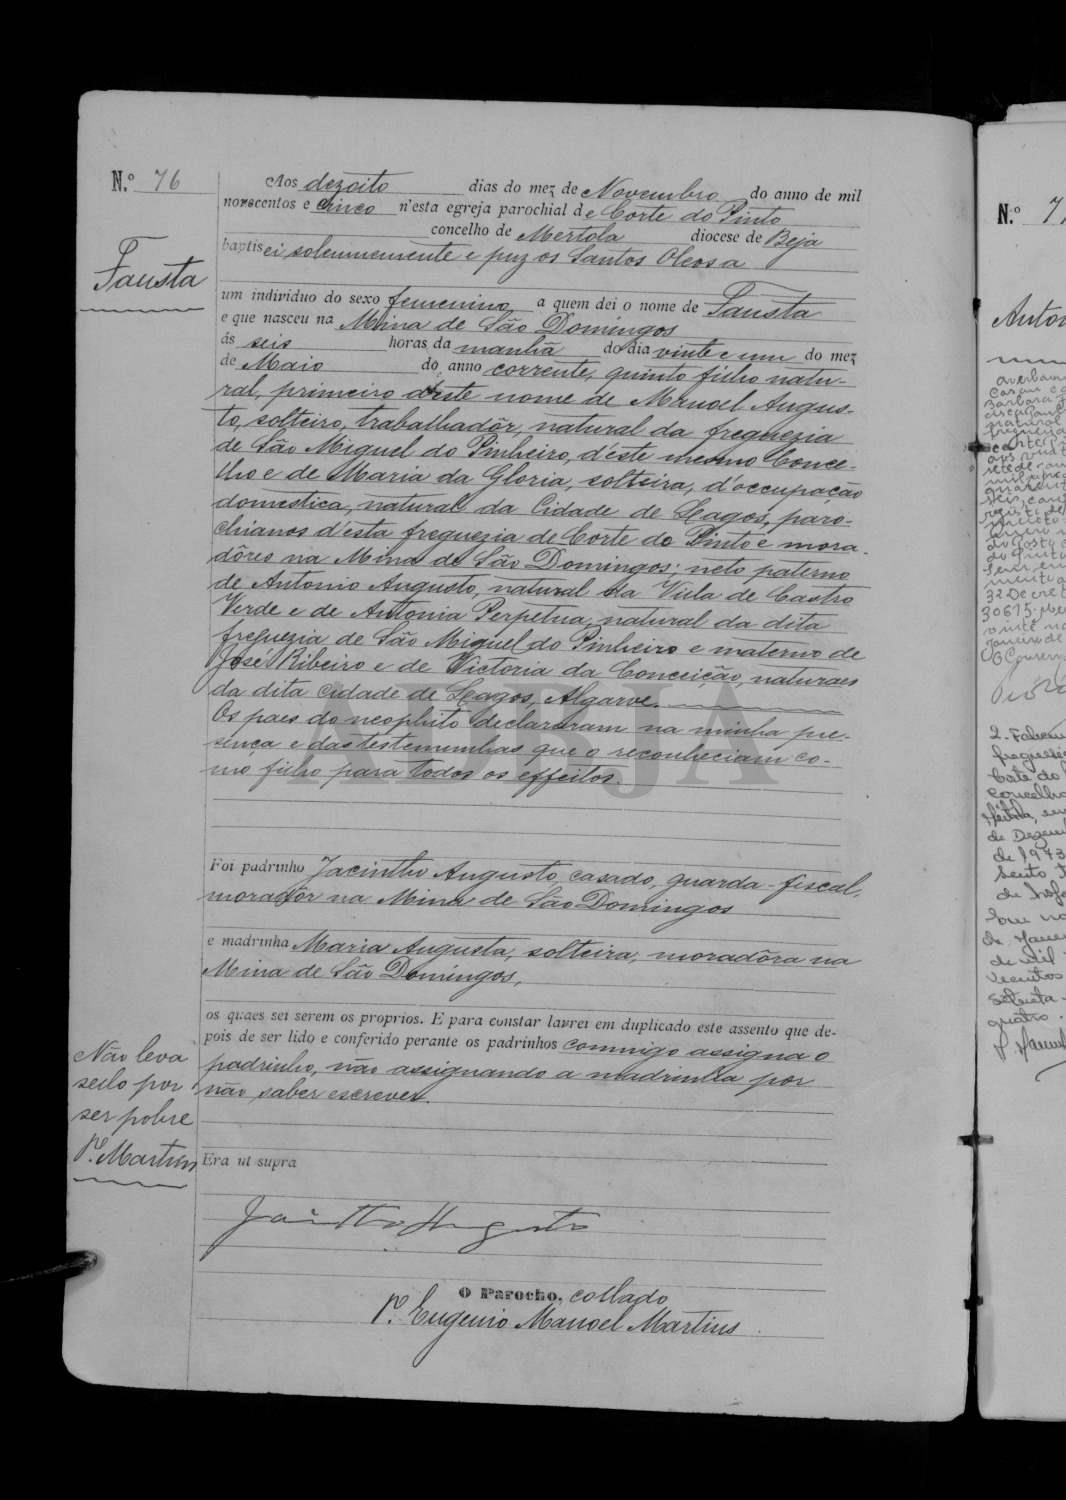 N.º 76
Fausta
Aos dezoito dias do mez de Novembro do anno de mil
novecentos e cinco n'esta egreja parochial de Corte do Pinto
concelho de Mertola diocese de Beja
baptisei solemnemente e puz os Santos Oleos a
um individuo do sexo femenino a quem dei o nome de Fausta
e que nasceu na Mina de São Domingos
ás seis horas da manhã do dia vinte e um do mez
de Maio do anno corrente, quinto filho natu-
ral, primeiro d'este nome de Manoel Augus-
to, solteiro, trabalhadôr, natural da freguezia
de São Miguel do Pinheiro, d'éste mesmo Conce-
lho e de Maria da Gloria, solteira, d'occupação
domestica, natural da Cidade de Lagos, paro-
chianos d'ésta freguezia de Corte do Pinto e mora-
dôres na Mina de São Domingos; neto paterno
de Antonio Augusto, natural da Villa de Castro
Verde e de Antonia Perpetua, natural da dita
freguezia de São Miguel do Pinheiro e materno de
José Ribeiro e de Victoria da Conceição, naturaes
da dita Cidade de Lagos, Algarve.
Os paes do neophito declararam na minha pre-
sença e das testemunhas que o reconheciam co-
mo filho para todos os effeitos.
ADBJA
Foi padrinho Jacintho Augusto, casado, guarda-fiscal,
moradôr na Mina de São Domingos
e madrinha Maria Augusta, solteira, moradôra na
Mina de São Domingos,
os quaes sei serem os proprios. E para constar lavrei em duplicado este assento que de-
pois de ser lido e conferido perante os padrinhos commigo assigna o
padrinho, não assignando a madrinha por
não saber escrever.
Não leva
sello por
ser pobre
P.e Martins
Era ut supra
Jacintho Augusto
O Parocho, collado
P.e Eugenio Manoel Martins
N.º 7
Anton
2. Faleceu
freguesia
concelho
de Dezem
de 1973
de mil
setenta
quatro.